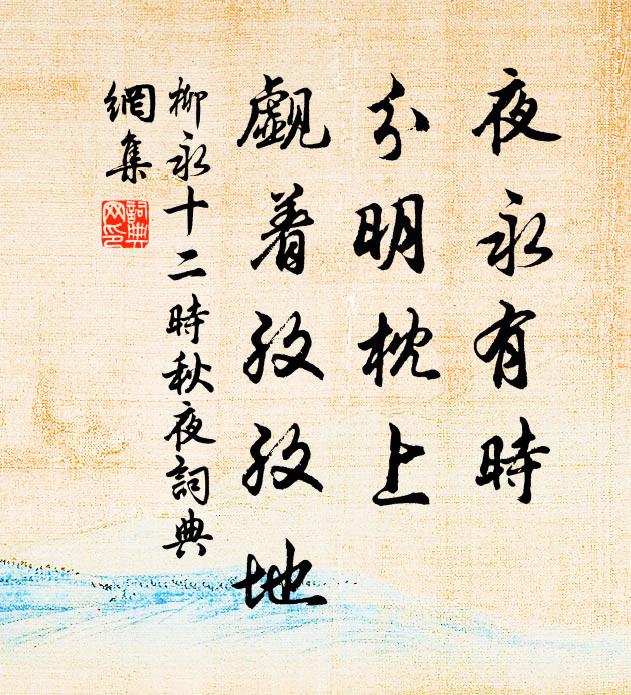 夜永有時
分明枕上
覷着孜孜地
柳永十二時秋夜詞典
網集
詞典
網印